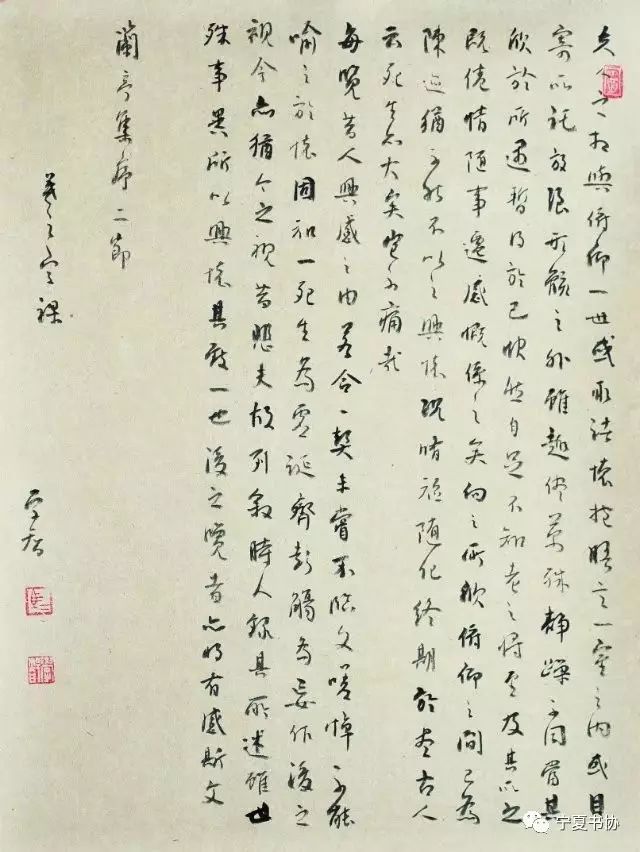 夫人之相與俯仰一世或取諸懷抱晤言一室之內或因
寄所託放浪形骸之外雖趣舍萬殊靜躁不同當其
欣於所遇暫得於己快然自足不知老之將至及其所之
既倦情隨事遷感慨係之矣向之所欣俯仰之間已為
陳迹猶不能不以之興懷況脩短隨化終期於盡古人
云死生亦大矣豈不痛哉
每覽昔人興感之由若合一契未嘗不臨文嗟悼不能
喻之於懷固知一死生為虛誕齊彭殤為妄作後之
視今亦猶今之視昔悲夫故列敘時人錄其所述雖世
殊事異所以興懷其致一也後之覽者亦將有感斯文
蘭亭集序二節
宁夏书协